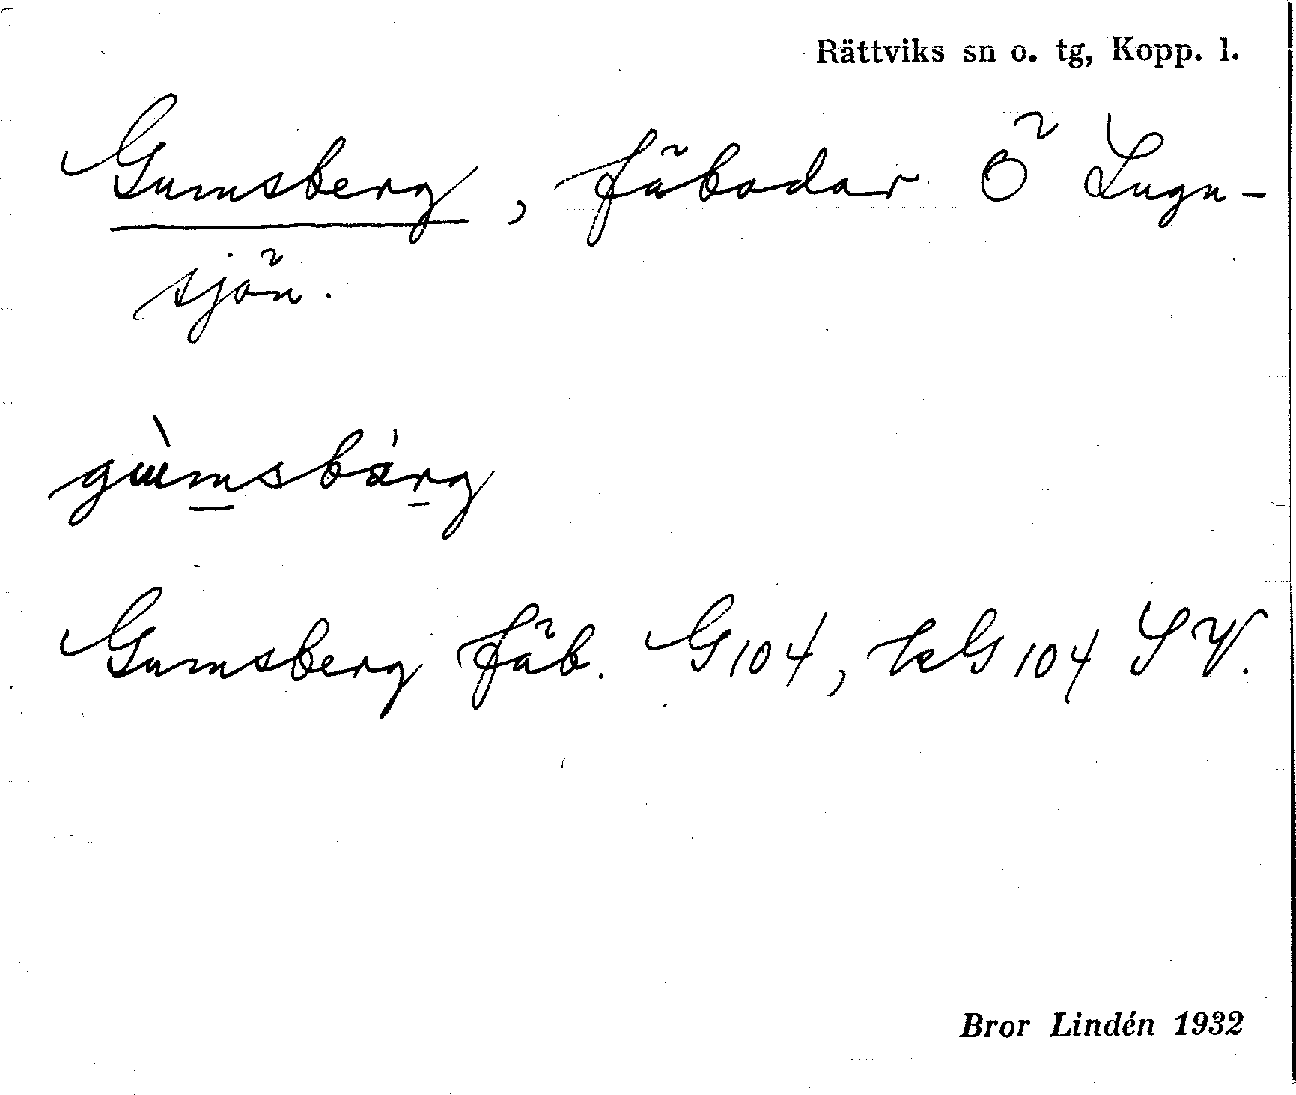 Rättviks sn o. tg, Kopp. l.
Gumsberg, fäbodar Ö Lugn-
sjön.
gùmsbárg
Gumsberg fäb. G104, kG104 SV.
Bror Lindén 1932